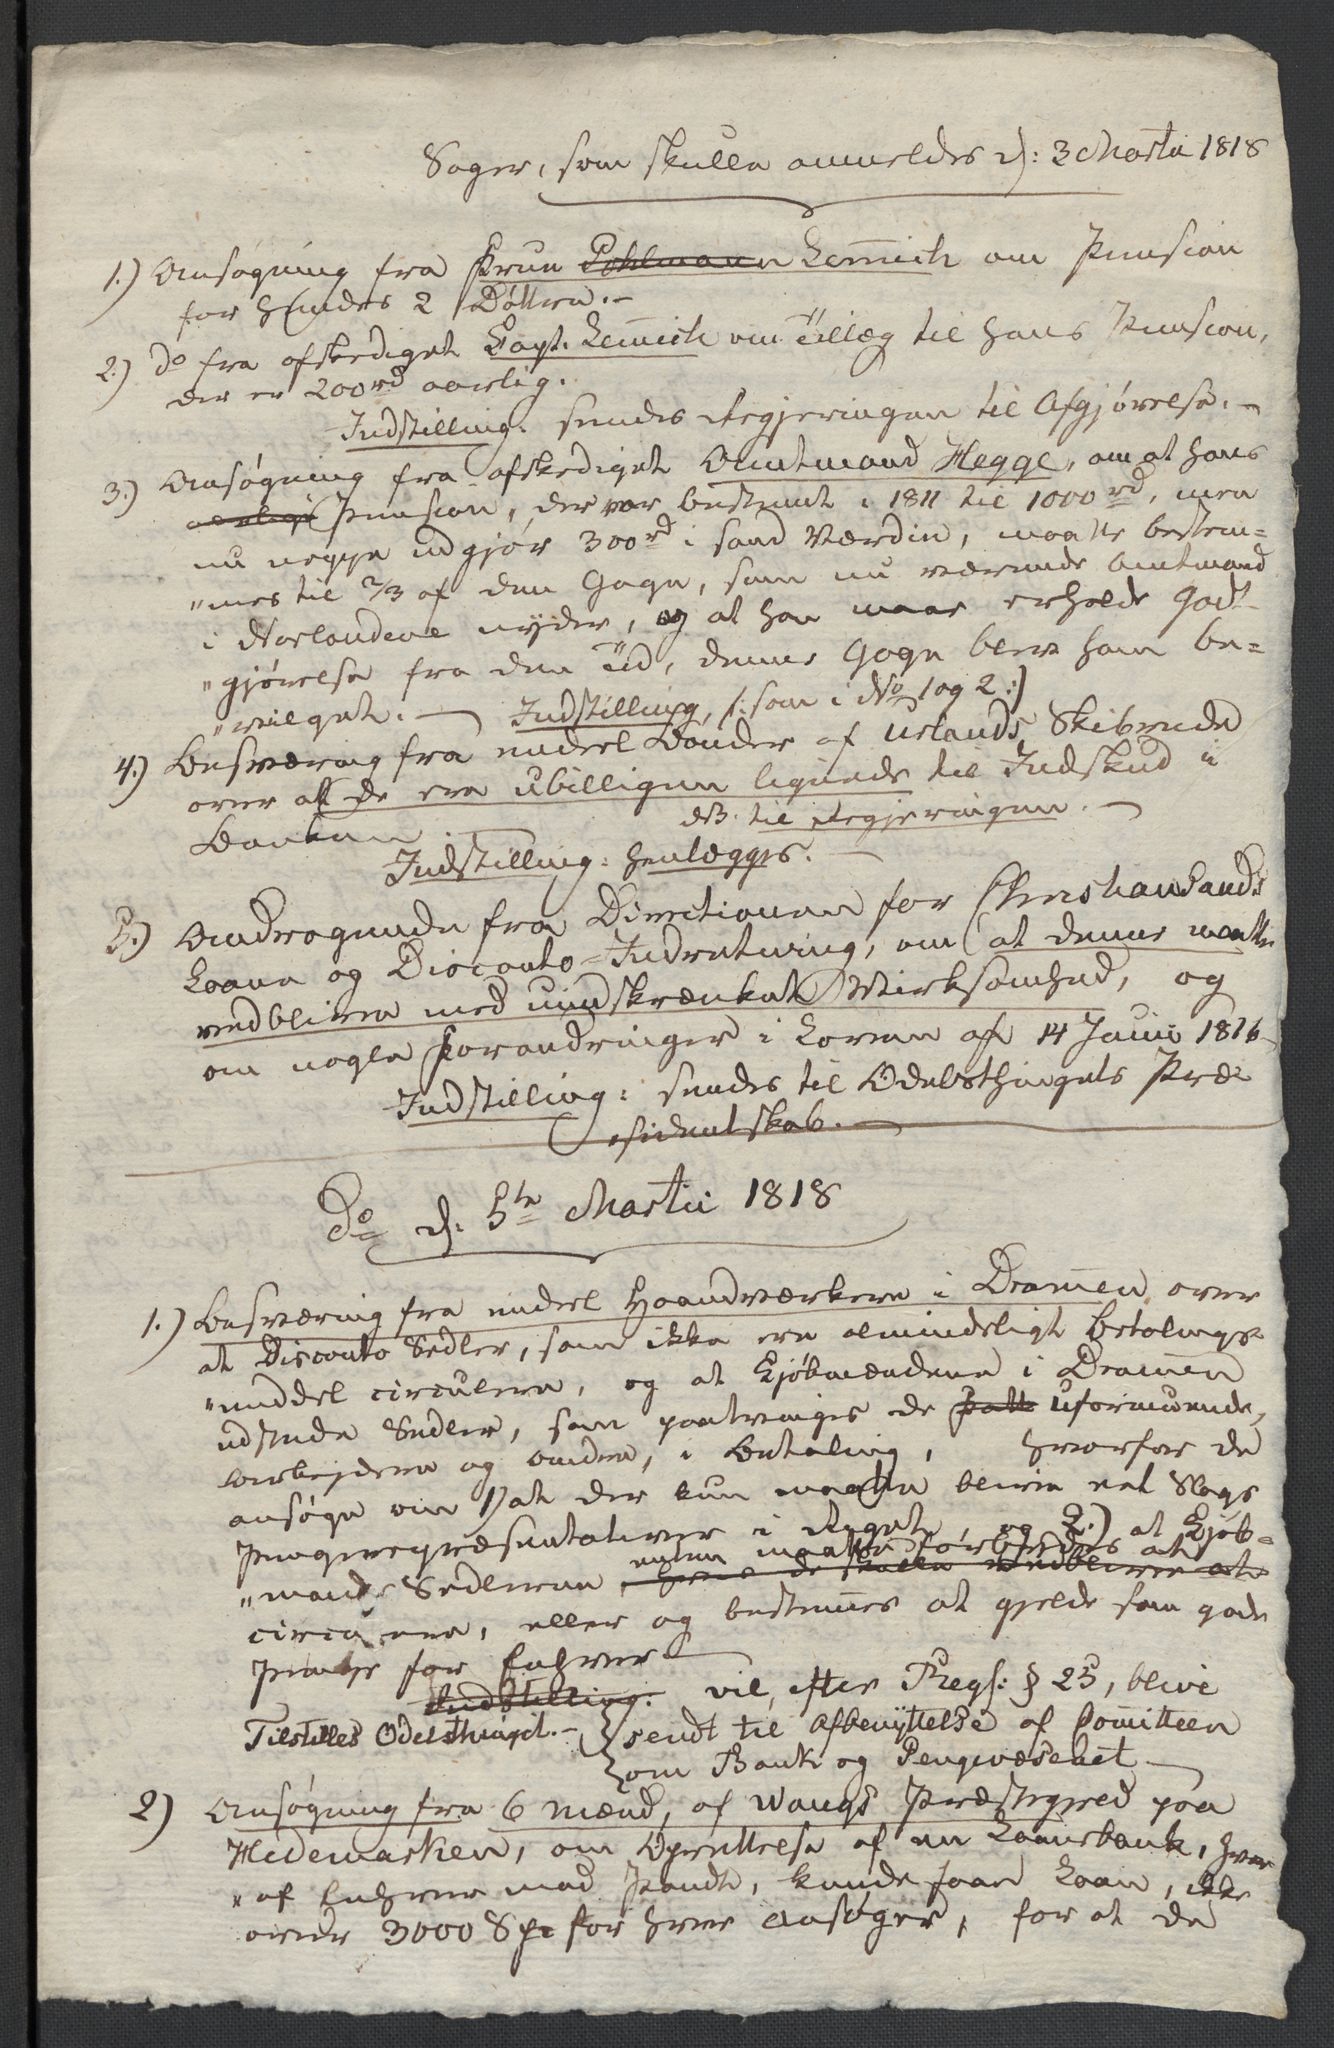 Sager, som skulle anmeldes d: 3 Martii 1818
1.) Ansøgning fra Frue Pohlmann Lemmich om Pension
for hendes 2 Døttre.-
2.) do fra afskediget Capt. Lemmich om Tillæg til hans Pension,
der er 200rd aarlig.
Indstilling: sendes Regjeringen til Afgjørelse.-
3.) Ansøgning fra afskediget Amtmand Hegge, om at hans
aarlige Pension, der var bestemt i 1811 til 1000rd, men
nu neppe udgjør 300rd i sand Værdie, maatte bestem=
"mes til 2/3 af den Gage, som nu værende Amtmand
i Norlandene nyder, og at han maae erholde Godt=
"gjørelse fra den Tid, denne Gage blev ham be=
"vilget. — Indstilling, /: som i No 1 og 2 :/
4.) Besværing fra endeel Bønder af Urlands Skibrede
over at de ere ubilligen lignede til Indskud i
Banken NB. til Regjeringen. —
Indstilling: henlægges. —
5.) Andragende fra Directionen for Christiansands
Laane og Disconto-Indretning, om at denne maatte
vedblive med uindskrænket Virksomhed, og
om nogle Forandringer i Loven af 14 Junii 1816
Indstilling: sendes til Odelsthingets Præ=
sidentskab. —
Do d: 5te Martii 1818
1.) Besværing fra endeel Haandværkere i Dramen over
at Disconto Sedler, som ikke ere almindeligt Betalings=
"middel circulere, og at Kjøbmændene i Dramen
udstede Sedler, som paatvinges de Fatt uformuende,
Arbeydere og andre, i Betaling, hvorfor de
ansøge om 1) at der kun maatte blive eet Slags
Pengerepræsentativer i Riget, og 2.) at Kjøb=
enten maatte forbydes at
"mands Sedlerne, hvis de skulle vedblive at
circulere, eller og bestemmes at gjelde som gode
Penge for Enhver —
Indstilling: vil, efter Regl: § 25, blive
Tilstilles Odelsthinget.- sendt til Afbenyttelse af Comitteen
om Bank og Pengevæsenet —
2) Ansøgning fra 6 Mænd, af Wangs Præstegjeld paa
Hedemarken, om Oprettelse af en Laanebank, hvor
"af Enhver mod Pandt, kunde faae Laan, ikke
over 3000 Sp for hver Ansøger, for at de